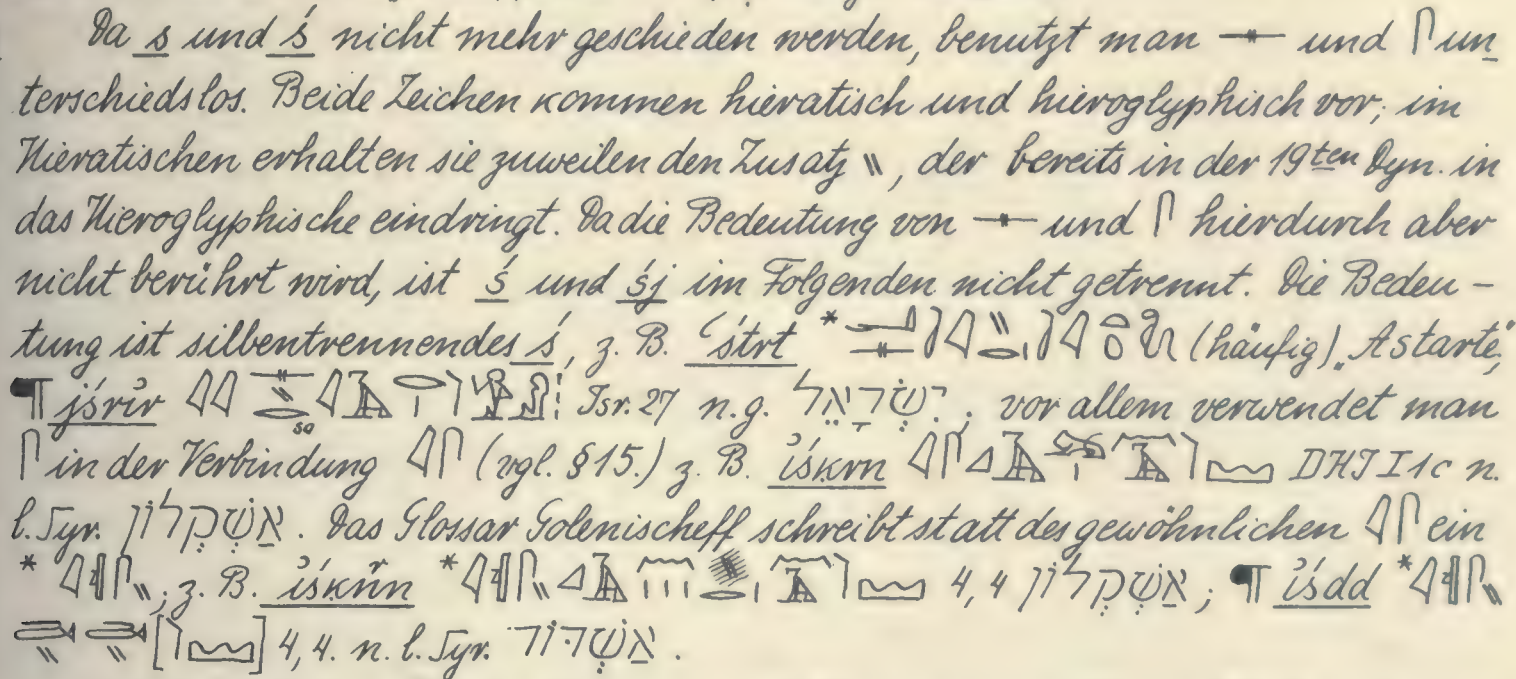 Da s und ś nicht mehr geschieden werden, benutzt man 𓊃 und 𓋴 un
terschiedslos. Beide Zeichen kommen hieratisch und hieroglyphisch vor; im
Hieratischen erhalten sie zuweilen den Zusatz \\, der bereits in der 19ten Dyn. in
das Hieroglyphische eindringt. Da die Bedeutung von 𓊃 und 𓋴 hierdurch aber
nicht berührt wird, ist ś und śj im Folgenden nicht getrennt. Die Bedeu-
tung ist silbentrennendes ś, z. B. ʿśtrt * (häufig) „Astarte",
¶ jśrı͗r Isr. 27 n. g. יִשְׂרָאֵל; vor allem verwendet man
𓋴 in der Verbindung 𓇋𓋴 (vgl. §15.) z. B. ı͗śḳrn DHI I 1c n.
l. Syr. אַשְׁקְלוֹן. Das Glossar Golenischeff schreibt statt des gewöhnlichen 𓇋𓋴 ein
* , z. B. * 4,4 אַשְׁקְלוֹן; ¶ ı͗śdd *
[ ] 4,4. n. l. Syr. אַשְׁדּוֹד.